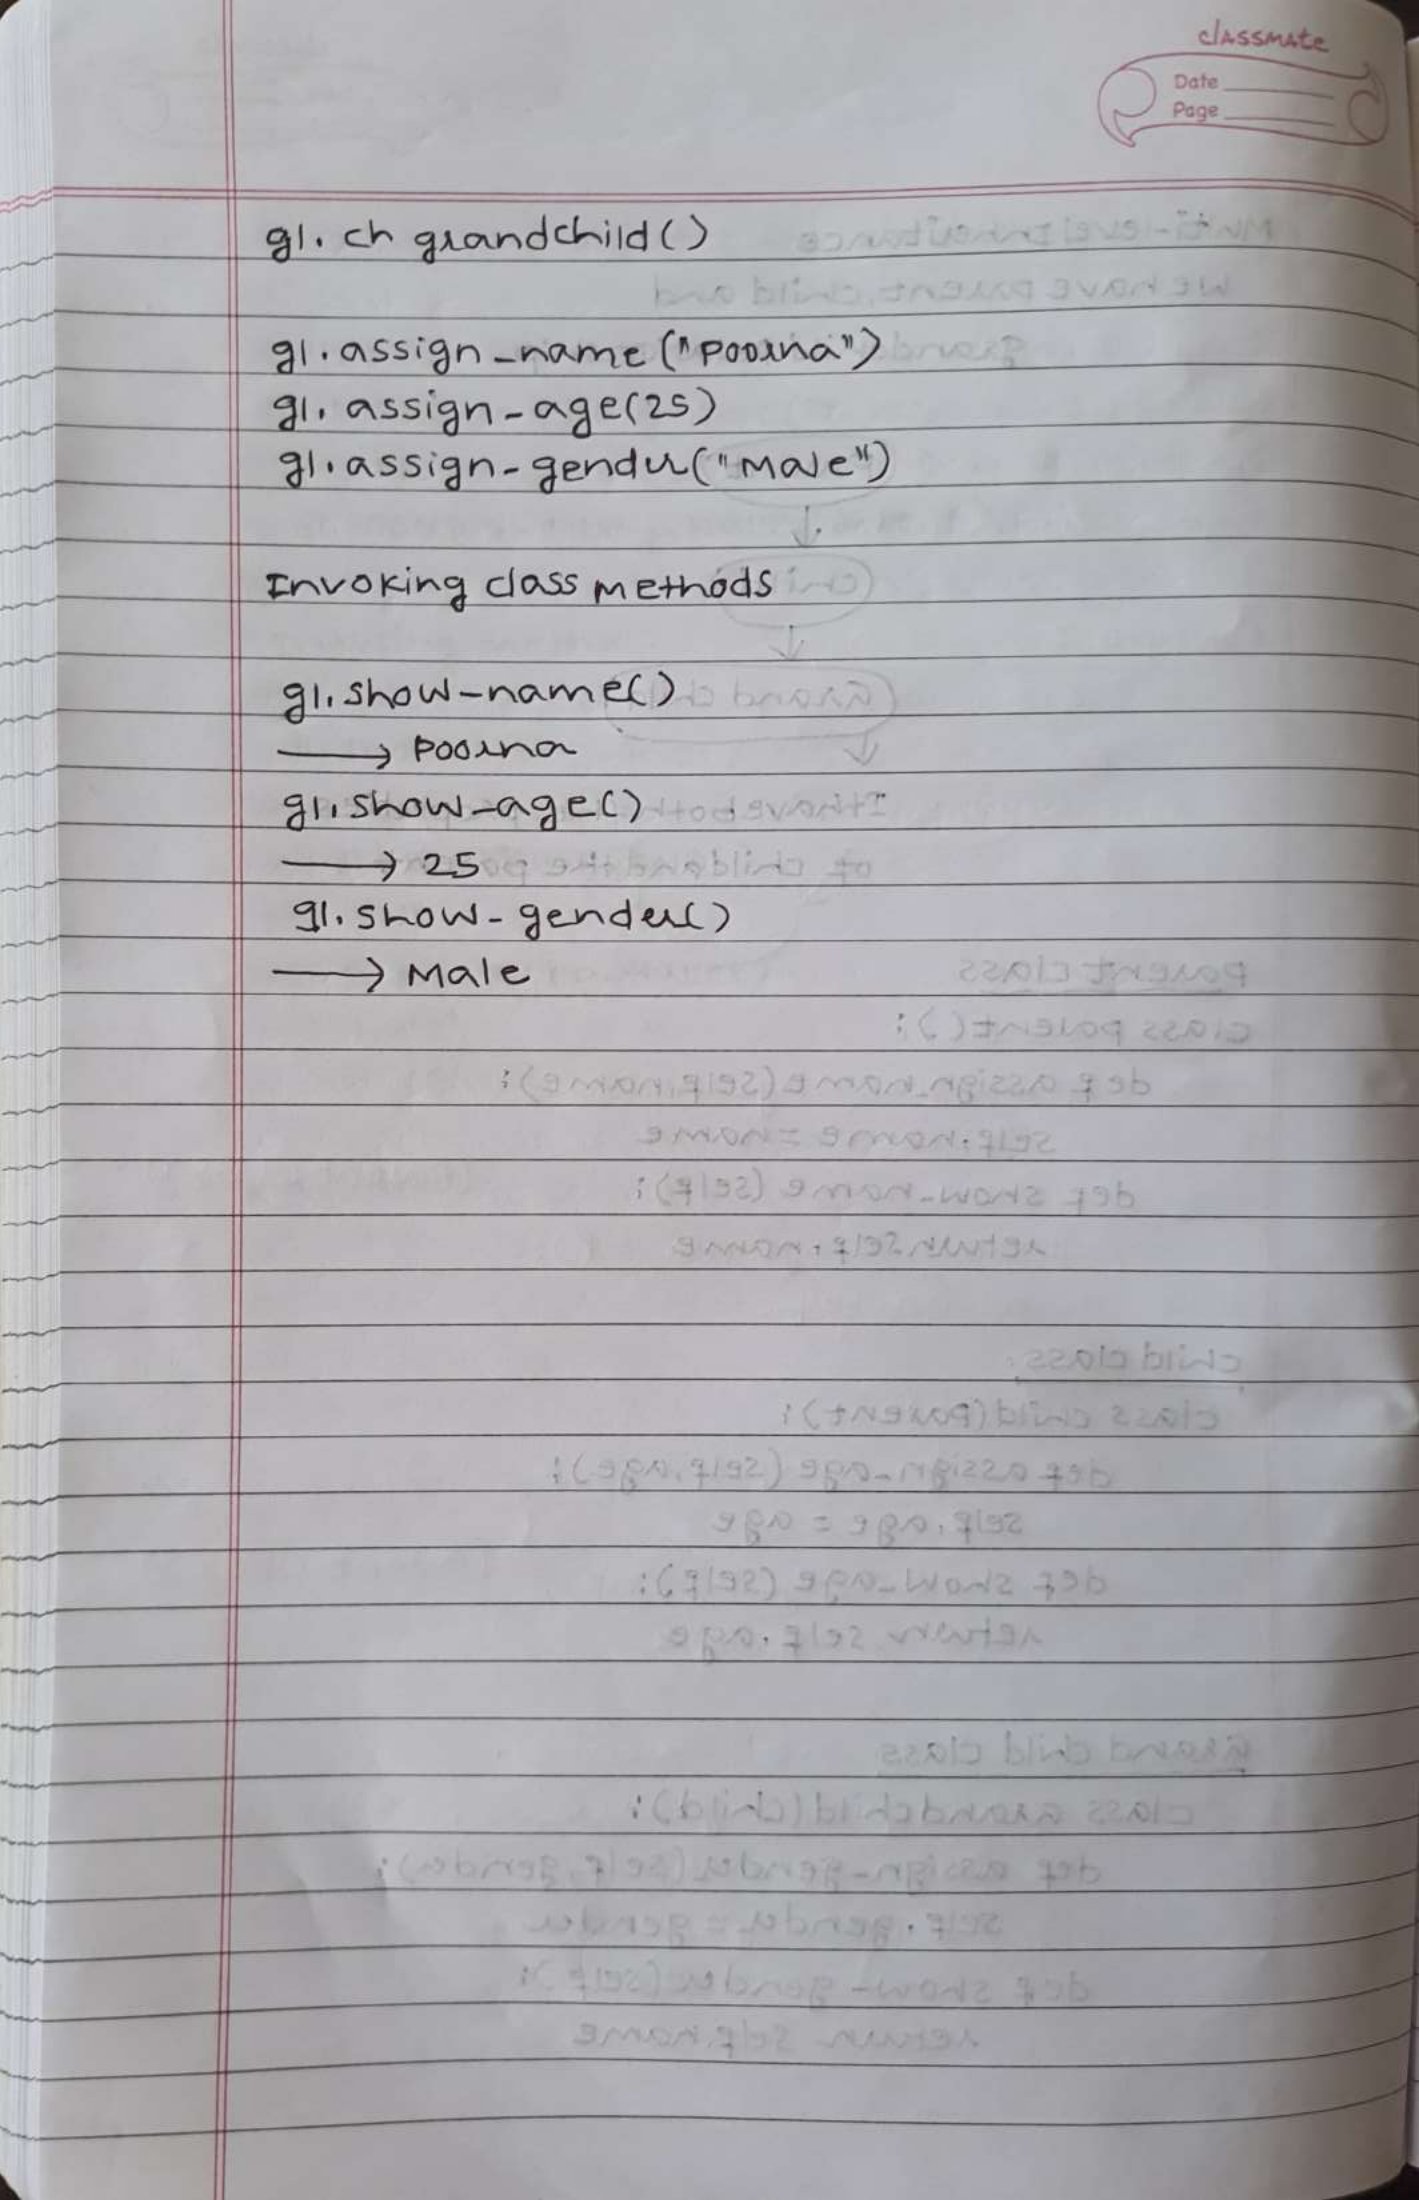 classmate
Date
Page
g1. ch grandchild()
g1.assign_name("Poorna")
g1. assign-age(25)
g1.assign-gender("Male")
Invoking class methods
g1.show-name()
→ Poorna
g1.show-age()
→ 25
g1.show-gender()
→ Male